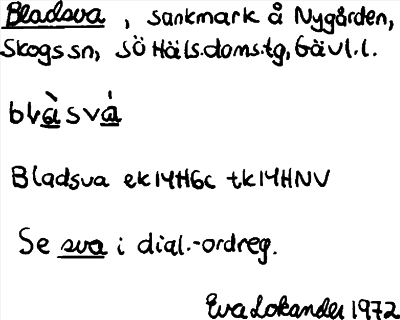 Bladsva, sankmark å Nygården,
Skogs sn, SÖ Häls.doms.tg, Gävl.l.
blàsvá
Bladsva ek14H6c tk14HNV
Se sva i dial.-ordreg.
Eva Lokander 1972